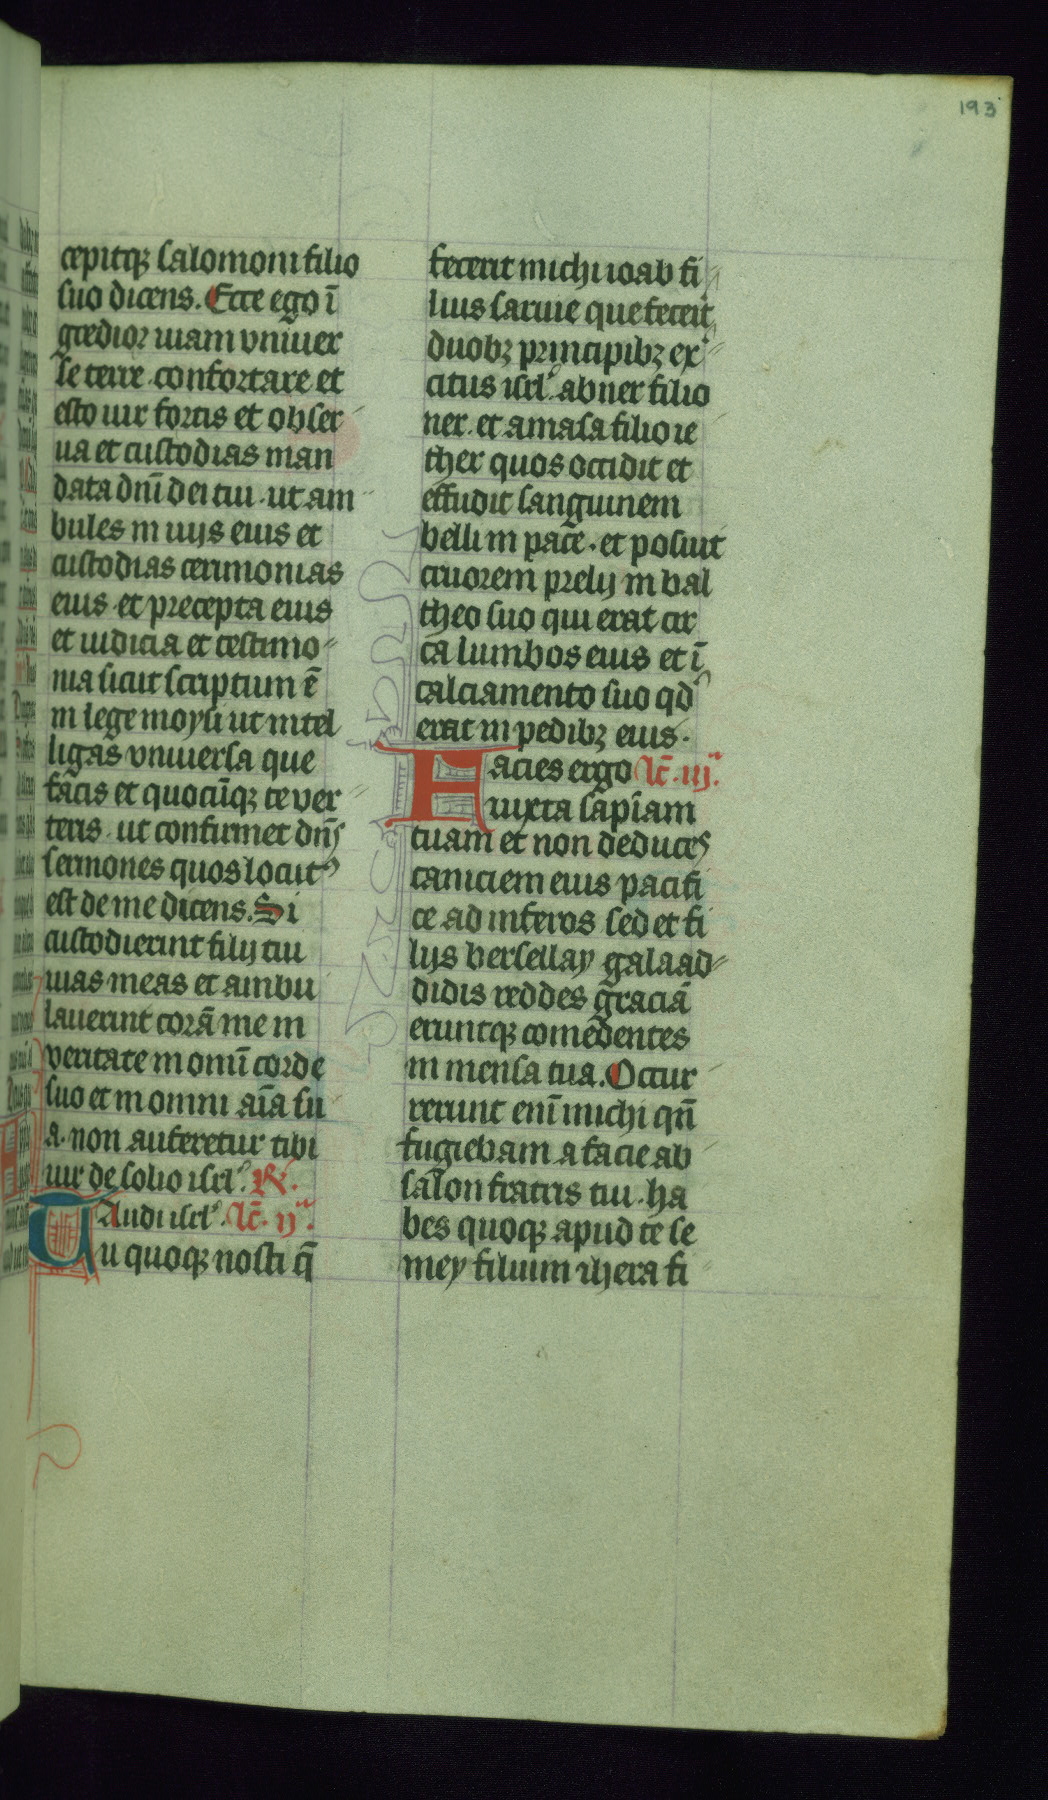 193
cepitq; salomoni filio
suo dicens. Ecce ego ī
gredior uiam vniuer
se terre. confortare et
esto uir fortis et obser
ua et custodias man
data dn̄i dei tui. ut am
bules in uijs eius et
custodias cerimonias
eius et precepta eius
et iudicia et testimo
nia sicut scriptum ē
in lege moysi ut intel
ligas vniuersa que
facis et quocūq; te ver
teris. ut confirmet dn̄s
sermones quos locutꝰ
est de me dicens. Si
custodierint filij tui
uias meas et ambu
lauerint corā me in
veritate in omī corde
suo et in omni aīa su
a. non auferetur tibi
uir de solio isrl'. R.
Audi isrl'. lc̄. ij.
Tu quoq; nosti q̄
fecerit michi ioab fi
lius saruie que fecerit
duobꝫ principibꝫ ex
citus isrl' abner filio
ner. et amasa filio ie
ther quos occidit et
effudit sanguinem
belli in pace. et posuit
cruorem prelij in bal
theo suo qui erat cir
ca lumbos eius et ī
calciamento suo qd
erat in pedibꝫ eius.
Facies ergo lc̄. iij.
iuxta sapīam
tuam et non deduces
caniciem eius pacifi
ce ad inferos sed et fi
lijs bersellay galaad
didis reddes graciā
eruntq; comedentes
in mensa tua. Occur
rerunt enī michi qn̄
fugiebam a facie ab
salon fratris tui. ha
bes quoq; apud te se
mey filium ihera fi